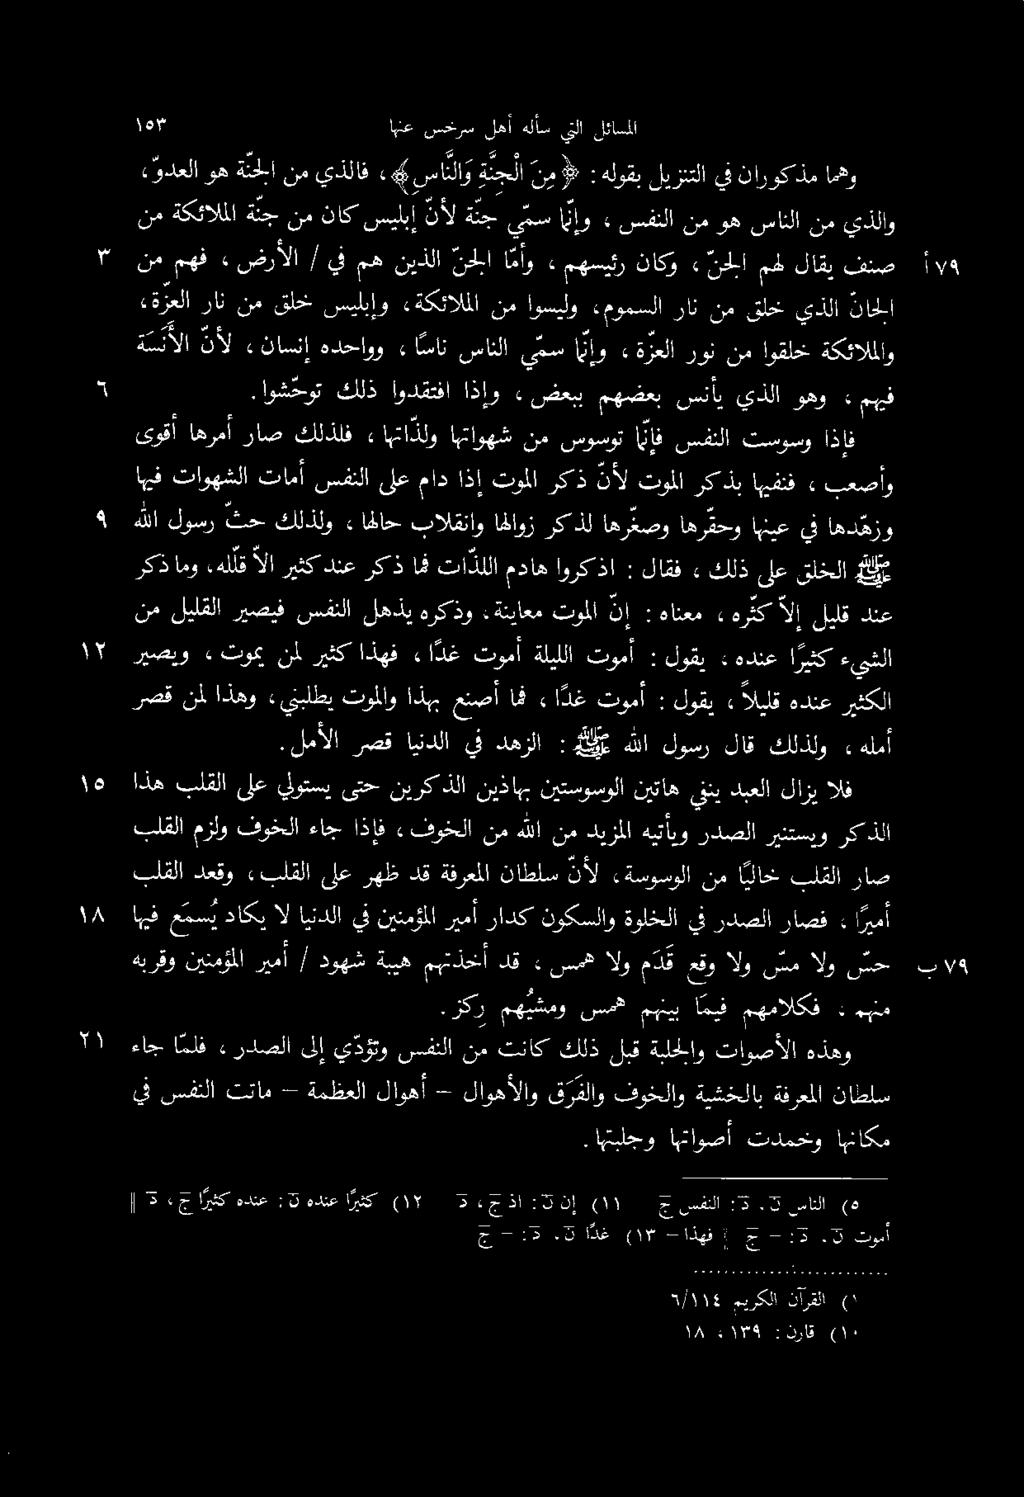 المسائل التي سأله أهل سرخس عنها ١٥٣
وهما مذكوران في التنزيل بقوله: ﴿مِنَ الْجِنَّةِ وَالنَّاسِ﴾، فالذي من الجنّة هو العدوّ،
والذي من الناس هو من النفس، وإنّما سمّي جنّة لأنّ إبليس كان من جنّة الملائكة من
٧٩ أ صنف يقال لهم الجنّ، وكان رئيسهم، وأمّا الجنّ الذين هم في / الأرض، فهم من ٣
الجانّ الذي خلق من نار السموم، وليسوا من الملائكة، وإبليس خلق من نار العزّة،
والملائكة خلقوا من نور العزّة، وإنّما سمّي الناس ناسًا، وواحده إنسان، لأنّ الأَنَسَة
فيهم، وهو الذي يأنس بعضهم ببعض، وإذا افتقدوا ذلك توحّشوا. ٦
فإذا وسوست النفس فإنّما توسوس من شهواتها ولذّاتها، فلذلك صار أمرها أقوى
وأصعب، فنفيها بذكر الموت لأنّ ذكر الموت إذا دام على النفس أمات الشهوات فيها
وزهّدها في عينها وحقّرها وصغّرها لذكر زوالها وانقلاب حالها، ولذلك حثّ رسول الله ٩
ﷺ الخلق على ذلك، فقال: اذكروا هادم اللذّات فما ذكر عندكثير الاّ قلّله، وما ذكر
عند قليل إلاّ كثّره، معناه: إنّ الموت معاينة، وذكره يذهل النفس فيصير القليل من
الشيء كثيرًا عنده، يقول: أموت الليلة أموت غدًا، فهذا كثير لمن يموت، ويصير ١٢
الكثير عنده قليلاً، يقول: أموت غدًا، فما أصنع بهذا والموت يطلبني، وهذا لمن قصر
أمله، ولذلك قال رسول الله ﷺ: الزهد في الدنيا قصر الأمل.
فلا يزال العبد ينفي هاتين الوسوستين بهاذين الذكرين حتى يستولي على القلب هذا ١٥
الذكر ويستنير الصدر ويأتيه المزيد من الله من الخوف، فإذا جاء الخوف ولزم القلب
صار القلب خاليًا من الوسوسة، لأنّ سلطان المعرفة قد ظهر على القلب، وقعد القلب
أميرًا، فصار الصدر في الخلوة والسكون كدار أمير المؤمنين في الدنيا لا يكاد يُسمَع فيها ١٨
٧٩ ب حسّ ولا مسّ ولا وقع قَدَم ولا همس، قد أخذتهم هيبة شهود / أمير المؤمنين وقربه
منهم، فكلامهم فيما بينهم همس ومشيُهم رِكز.
وهذه الأصوات والجلبة قبل ذلك كانت من النفس وتؤدّي إلى الصدر، فلمّا جاء ٢١
سلطان المعرفة بالخشية والخوف والفَرَق والأهوال – أهوال العظمة – ماتت النفس في
مكانها وخمدت أصواتها وجلبتها.
٥) الناس ن، د: النفس ج ١١) إن ن: اذ ج، د ١٢) كثيرًا عنده ن: عنده كثيرًا ج، د ||
أموت ن، د: – ج || فهذا – ١٣) غدًا ن، د: – ج
١) القرآن الكريم ٦/١١٤
١٠) قارن: ١٣٩، ١٨